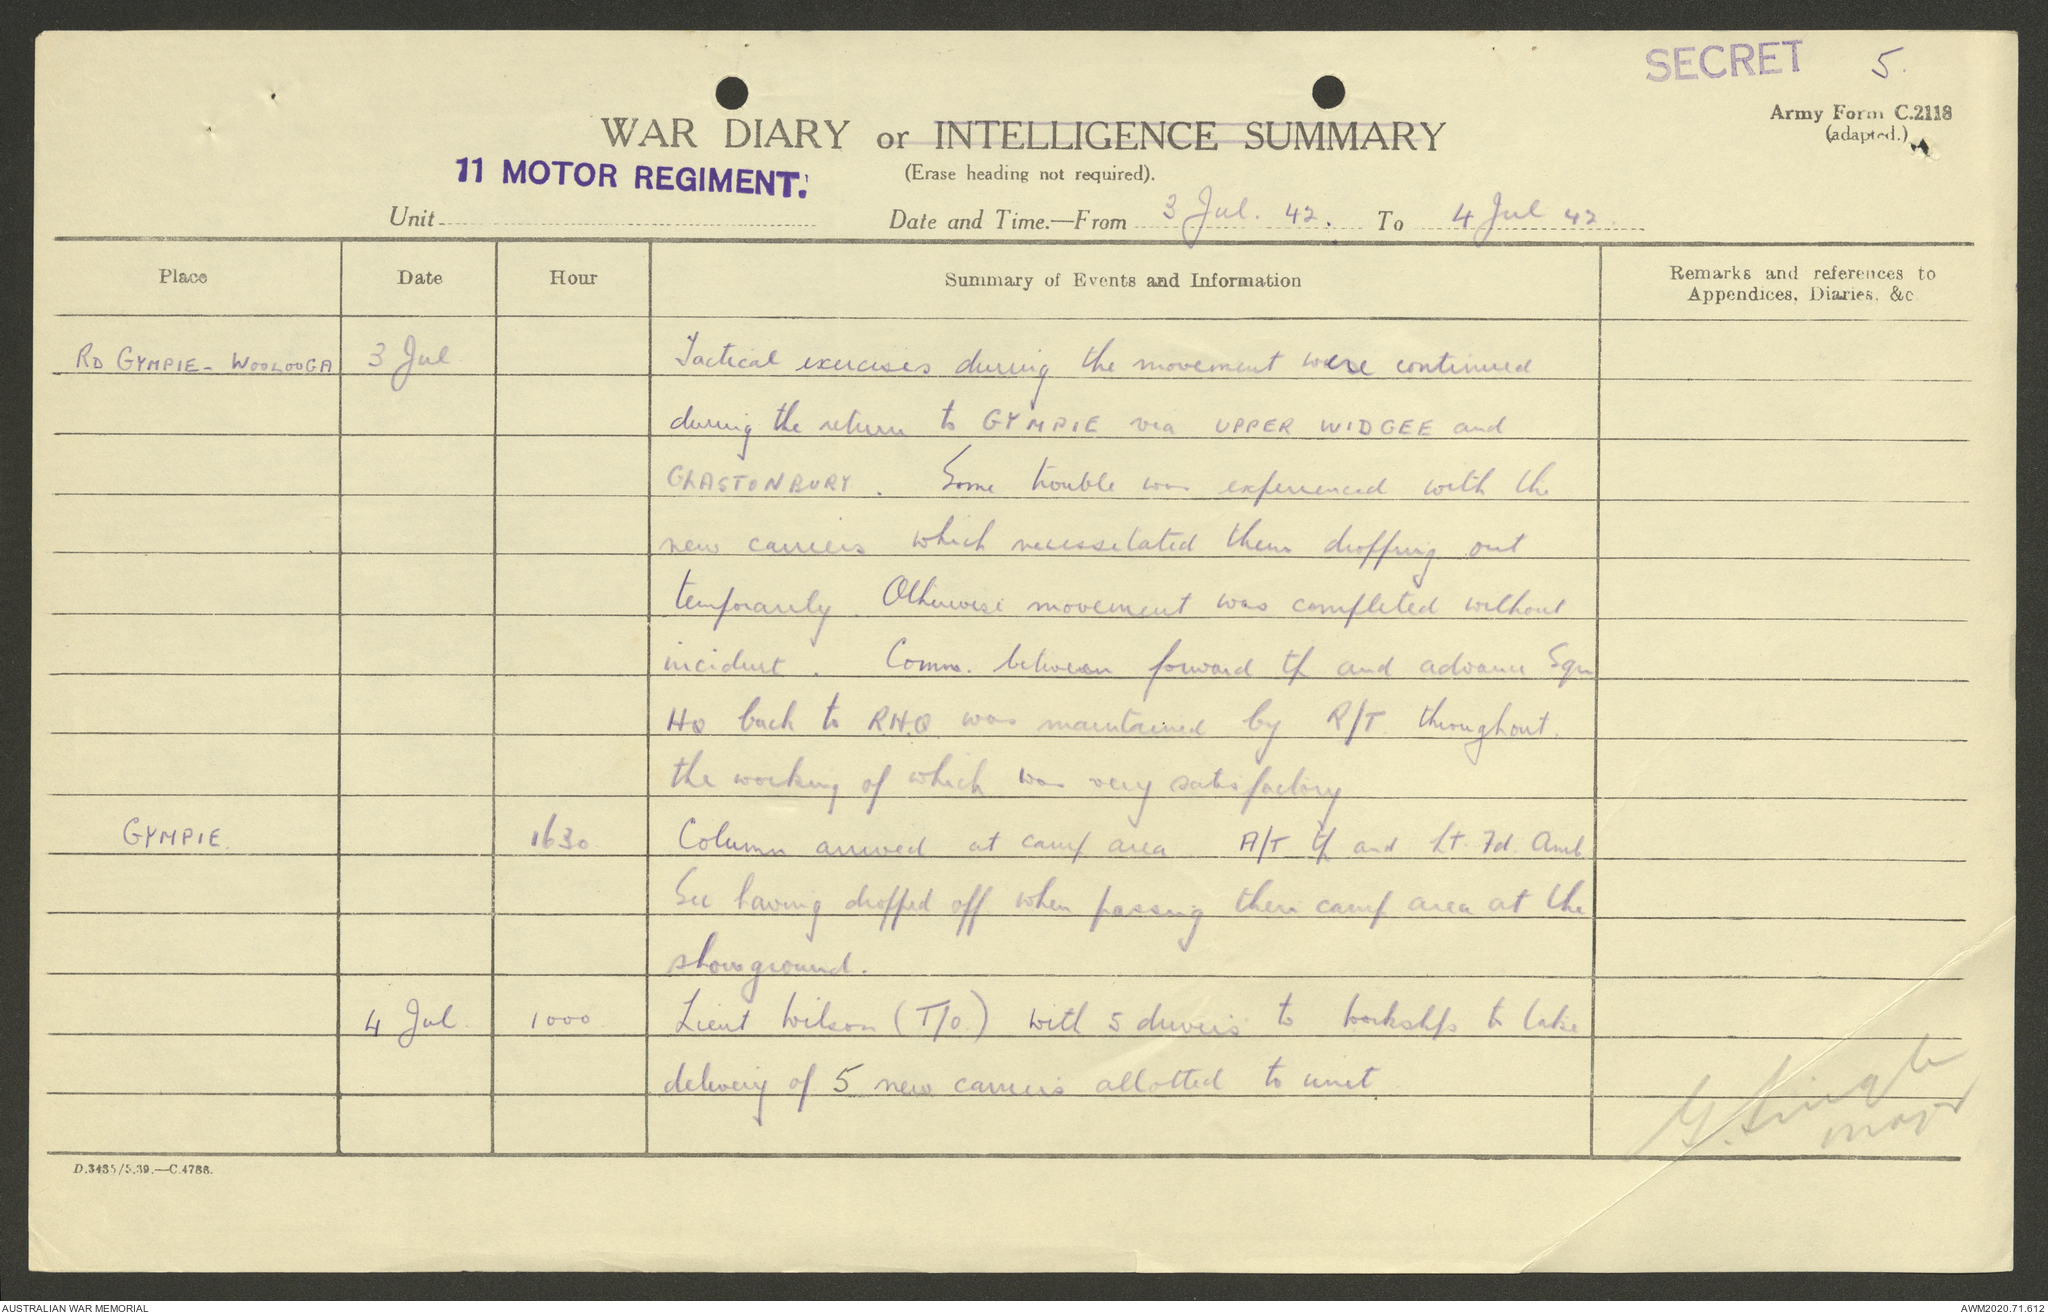 SECRET 5.
Army Form C.2118
(adapted.)
WAR DIARY or INTELLIGENCE SUMMARY
(Erase heading not required).
11 MOTOR REGIMENT.
Unit
Date and Time.—From 3 Jul. 42. To 4 Jul 42.
Place Date Hour Summary of Events and Information Remarks and references to
Appendices, Diaries, &c
RD GYMPIE - WOOLOOGA 3 Jul Tactical exercises during the movement were continued
during the return to GYMPIE via UPPER WIDGEE and
GLASTONBURY. Some trouble was experienced with the
new carriers which necessitated them dropping out
temporarily. Otherwise movement was completed without
incident. Comm. between forward tp and advance Sqn
HQ back to RHQ was maintained by R/T throughout.
the working of which was very satisfactory
GYMPIE. 1630 Column arrived at camp area A/T tp and Lt. Fd. Amb.
Sec having dropped off when passing their camp area at the
showground.
4 Jul. 1000 Lieut Wilson (T/O.) with 5 drivers to workshps to take
delivery of 5 new carriers allotted to unit
Major
D.3435/5.39.—C.4788.
AUSTRALIAN WAR MEMORIAL
AWM2020.71.612